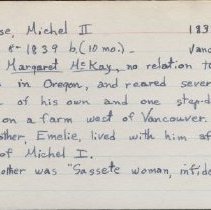 se, Michel II 183
8- 1839 b. (10 mo.) - Vanc
Margaret McKay, no relation to
in Oregon, and reared sever
of his own and one step-d
on a farm west of Vancouver.
ther, Emelie, lived with him af
of Michel I.
other was "Sassete woman, infide